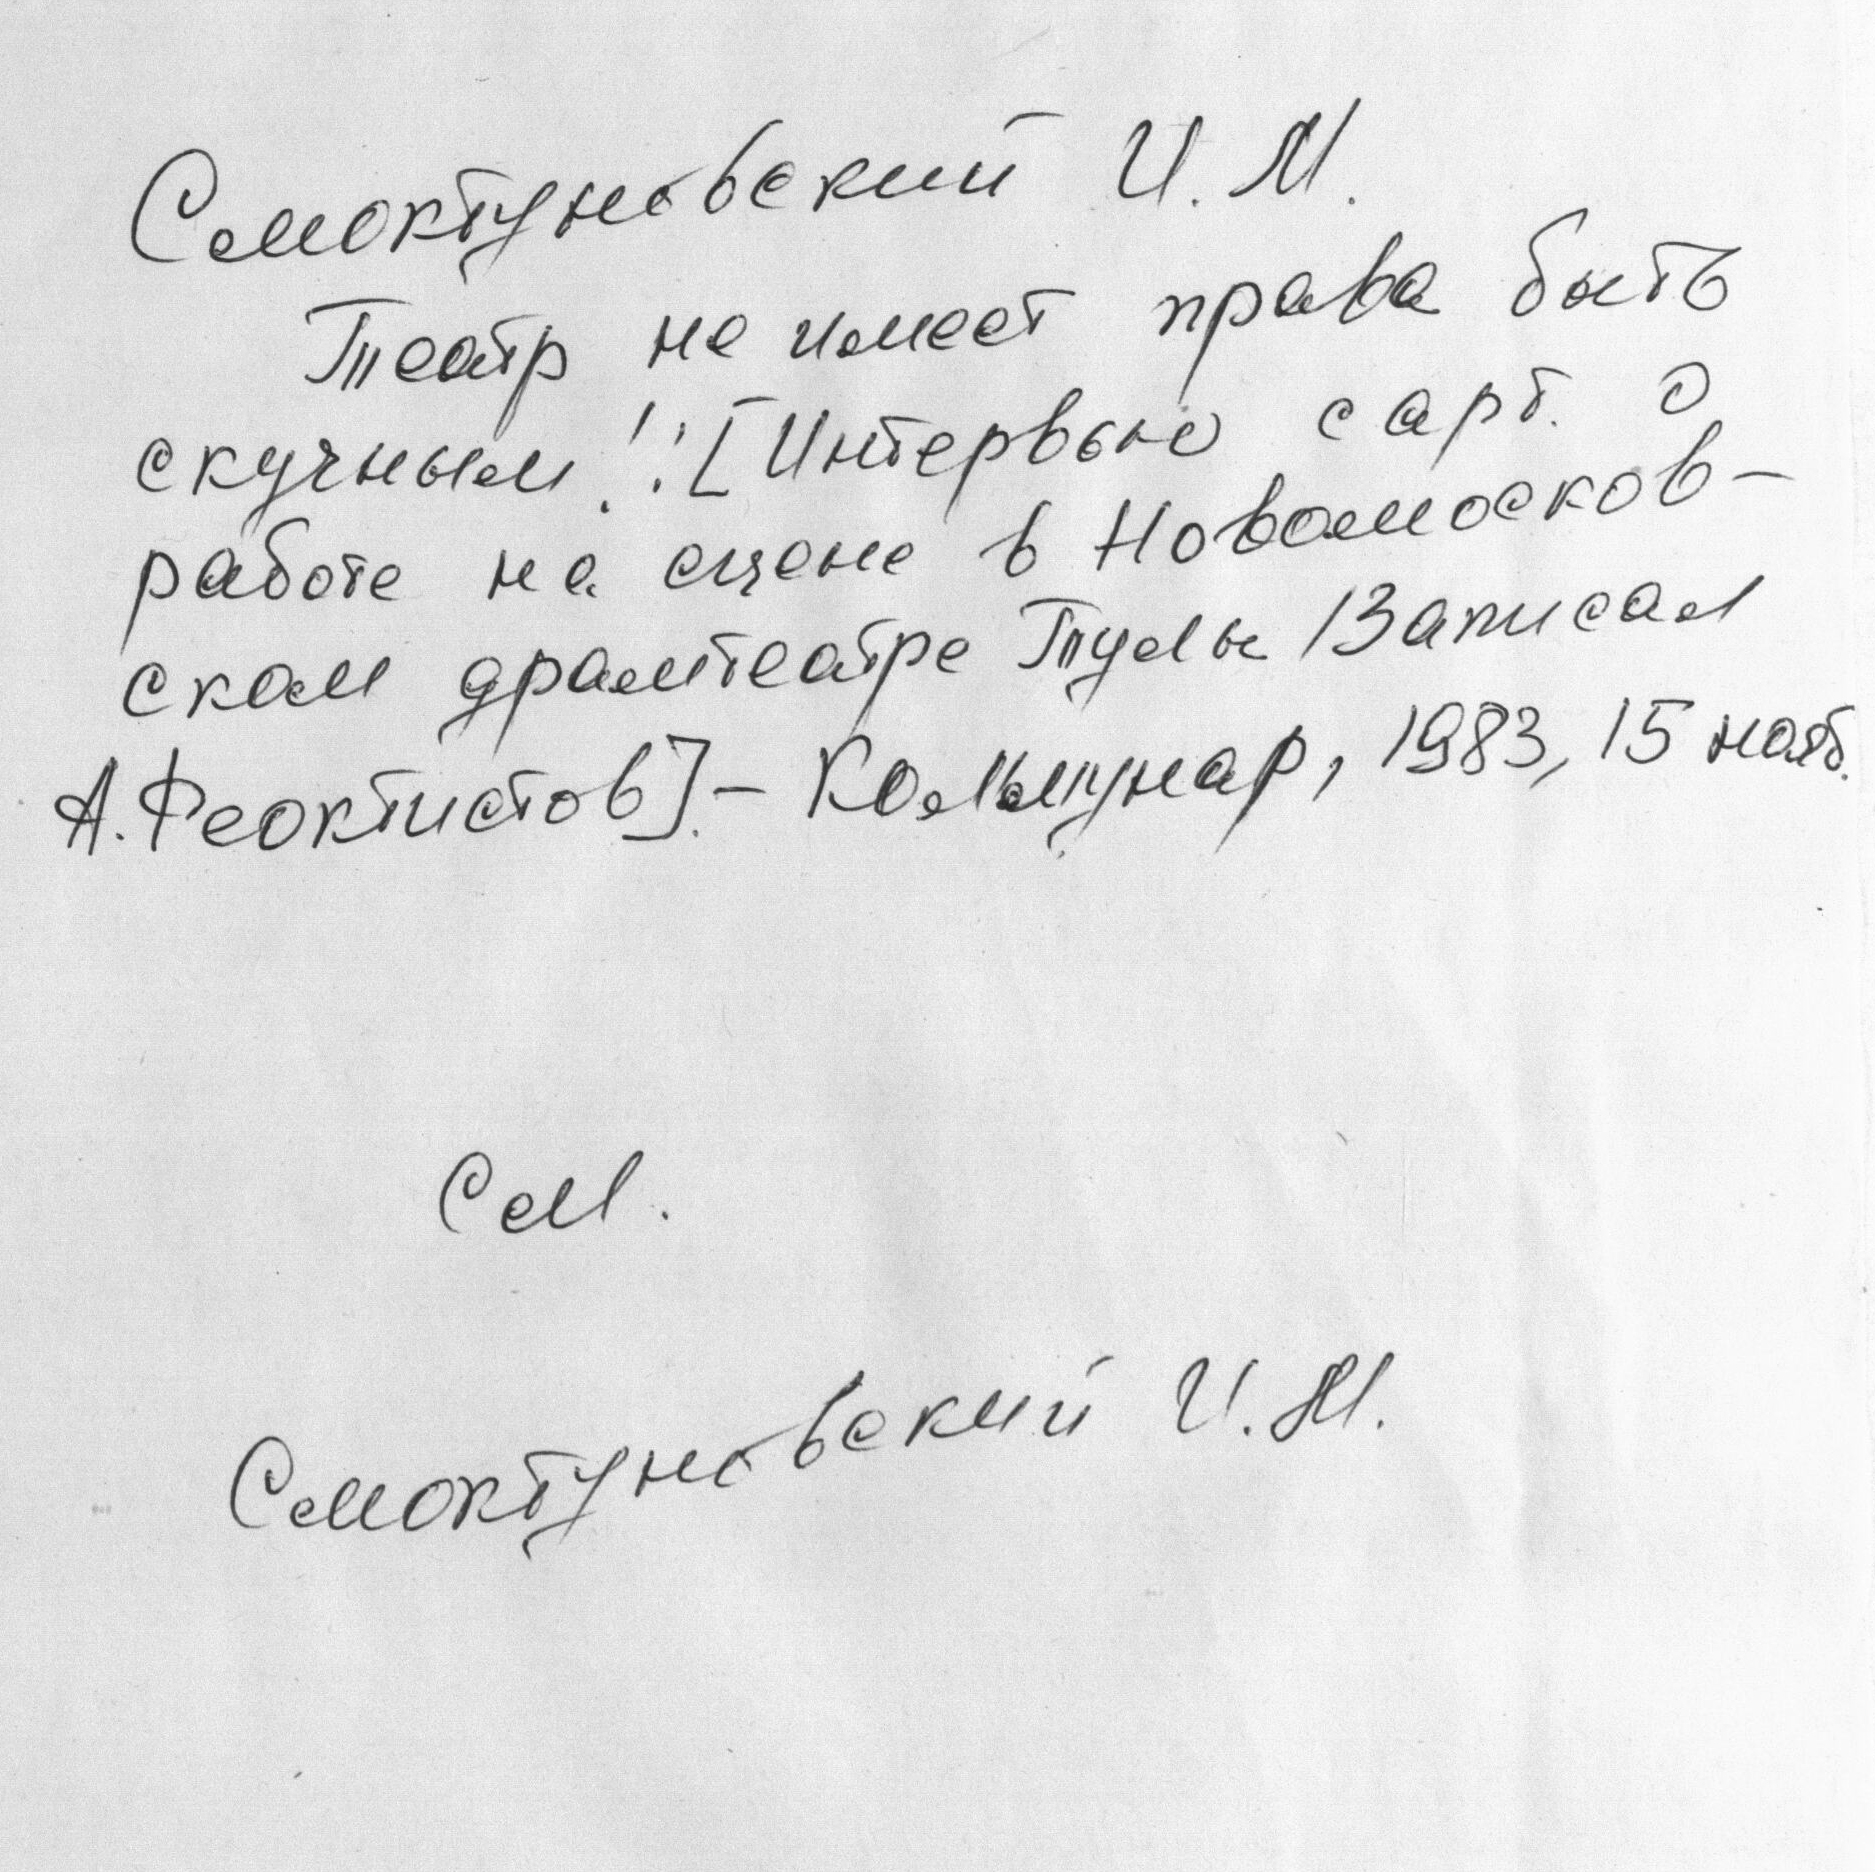 Смоктуновский И. М.
Театр не имеет права быть
скучным!: [Интервью с арт. о
работе на сцене в Новомосков-
ском драмтеатре Тулы / Записал
А. Феоктистов]. - Коммунар, 1983, 15 нояб.
См.
Смоктуновский И. М.